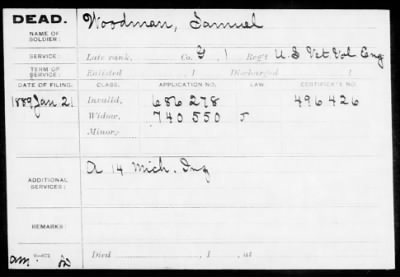 DEAD.
Woodman, Samuel
NAME OF SOLDIER:
SERVICE:
Late rank, Co. G, 1 Reg't U.S Vet Vol Eng
TERM OF SERVICE:
Enlisted , 1 Discharged , 1
DATE OF FILING. CLASS. APPLICATION NO. LAW. CERTIFICATE NO.
1889 Jan 21 Invalid, 686 278 496 426
Widow, 740 550 J
Minor,
ADDITIONAL SERVICES:
A 14 Mich. Inf
REMARKS:
Died , 1 , at